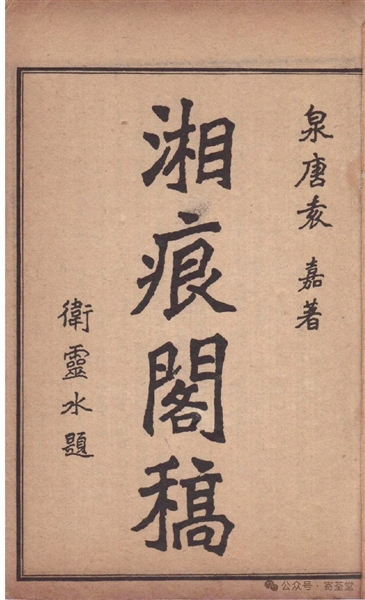 泉唐袁嘉著
湘痕閣稿
衛靈水題
公众号 · 寄荃堂